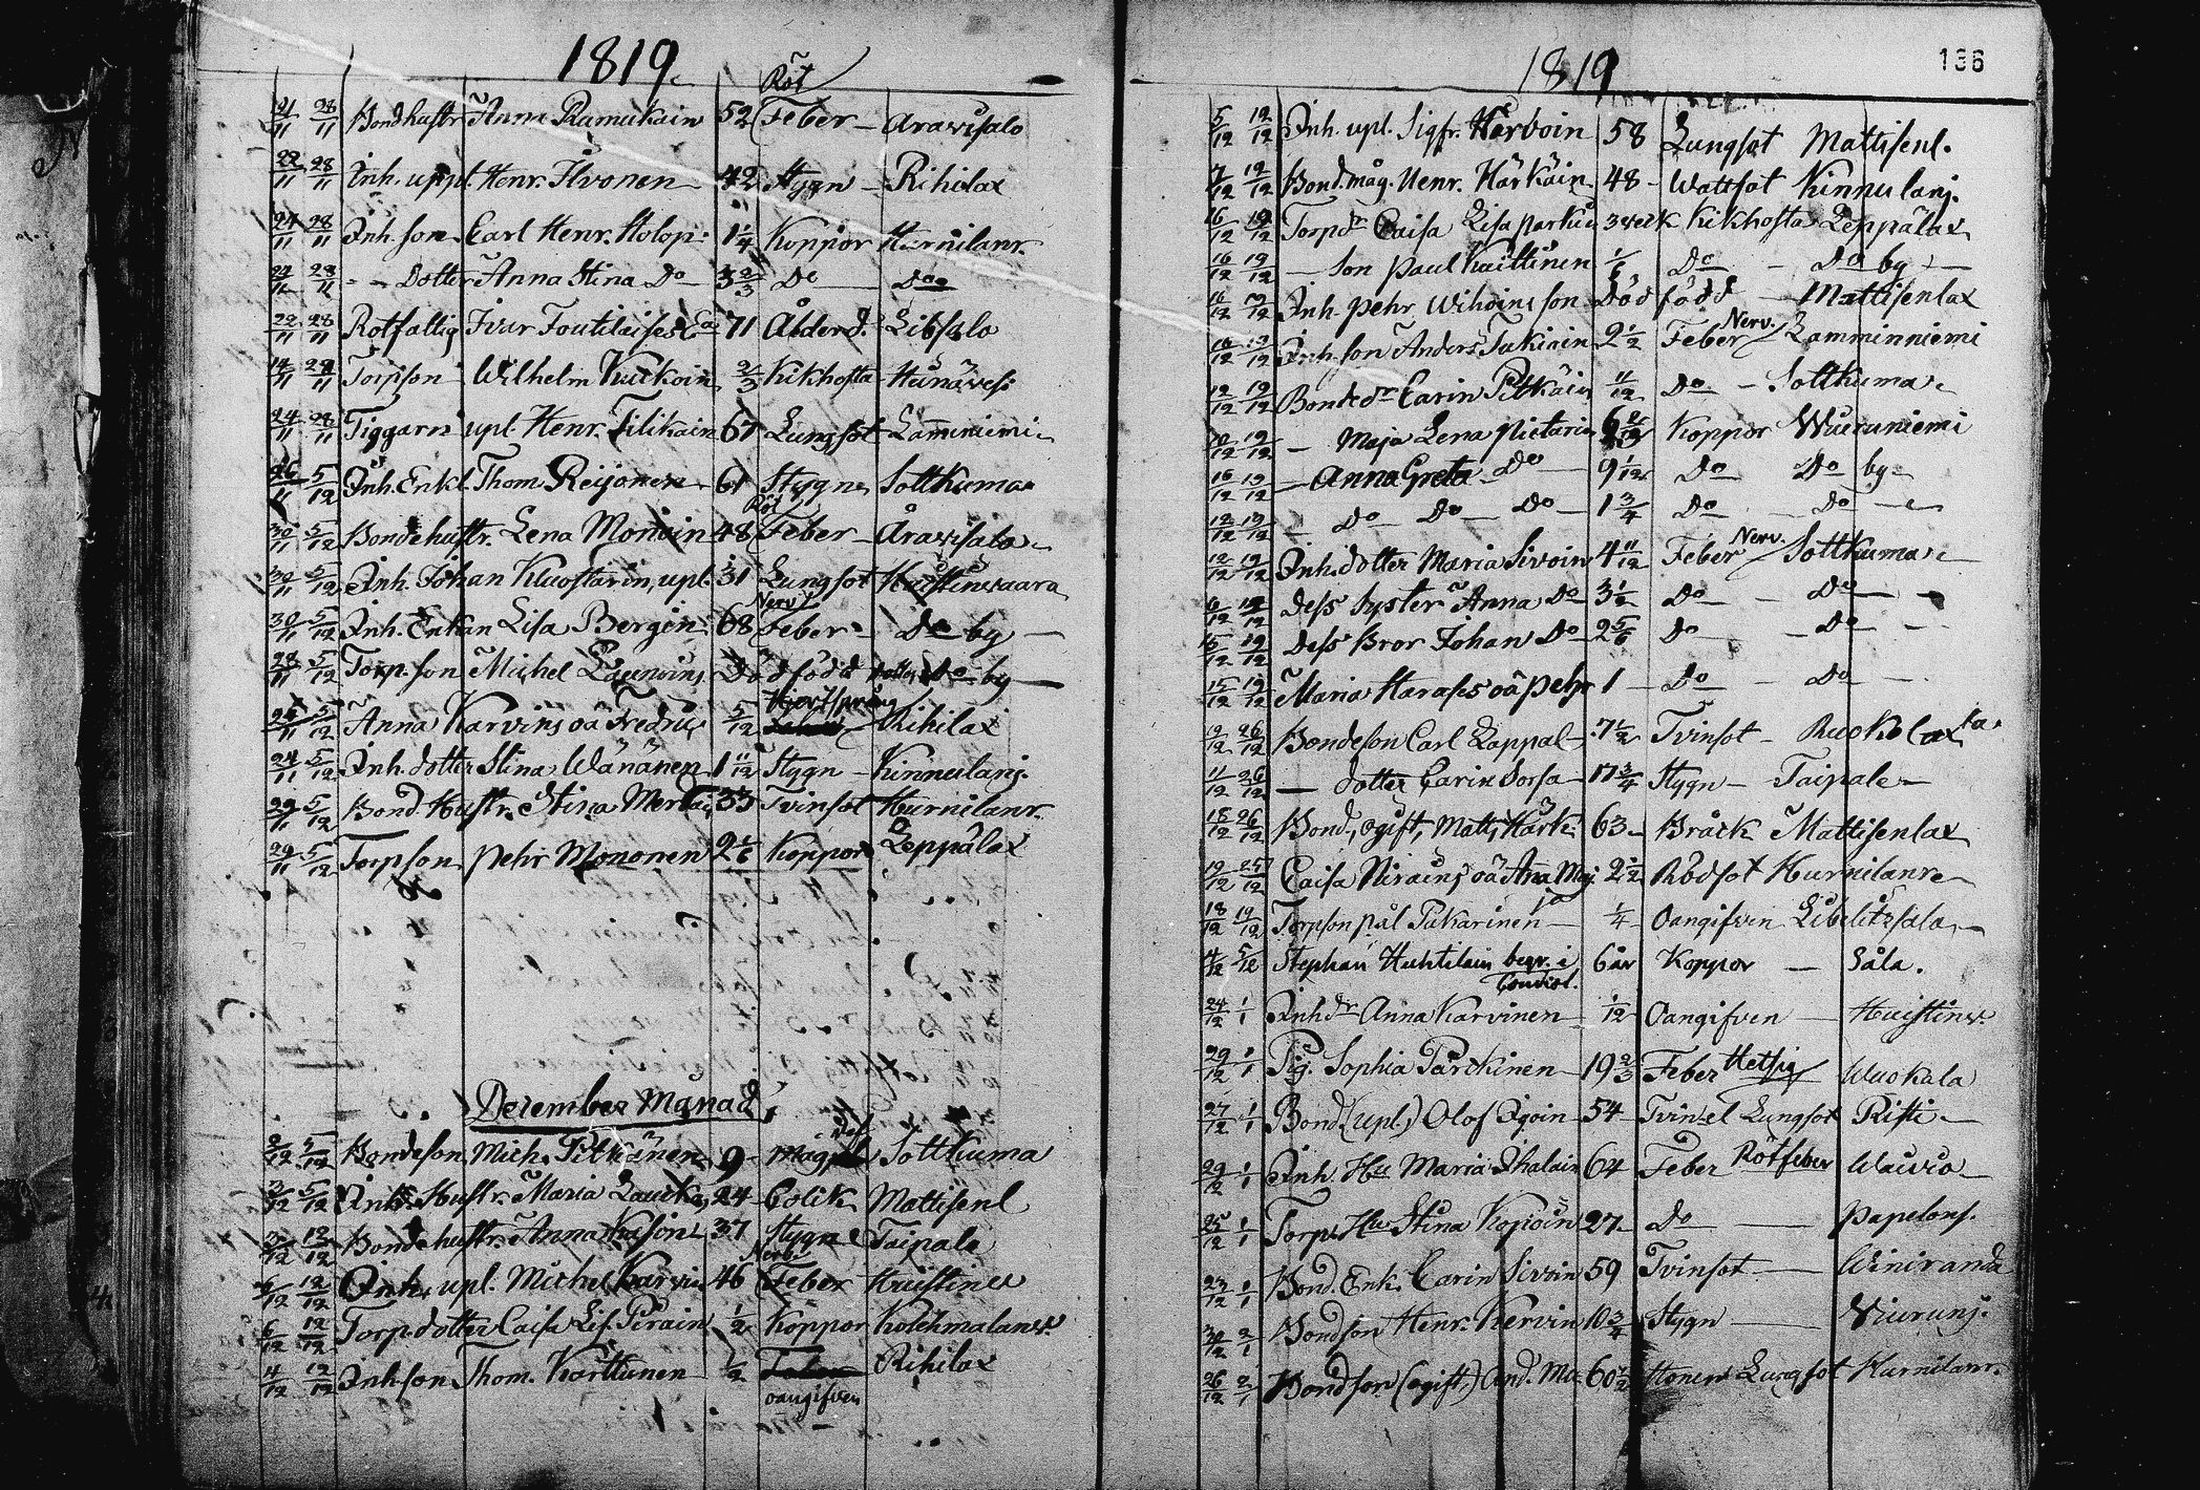 1819
21/11 28/11 Bondhustr Anna Ramukain 52 Röt Feber - Aravisalo
22/11 28/11 Inh. uppl. Henr. Ilvonen 42 Stygn - Rihilax
24/11 28/11 Inh. son. Carl Henr. Holop: 1 1/4 Koppor Hurnilanr.
28/11 - - Dotter Anna Stina Do 3 2/3 Do Do
22/11 28/11 Rotfattig Ivar 71 Ålderd. Libsalo
14/11 28/11 Torpson Wilhelm Kuikoin 2/3 Kikhosta
24/11 28/11 Tiggarn upl. Henr. Tilikain 67 Lungsot Lamminiemi
26/11 5/12 Inh. Enkl. Thom. Reijonen 61 Stygn Sottkuma
30/11 5/12 Bondehustr. Lena Mononin 48 Röt Feber - Aravisalo
30/11 5/12 Inh. Johan Kluostarin, upl. 31 Lungsot Huistinvaara
30/11 5/12 Inh. Enkan Lisa Bergin 68 Nerv Feber - Do by
28/11 5/12 Torp. son Michel Dödfödd Do by
5/12 Anna Karvins oä Fredric 5/12 Hjertsprång Rihilax
24/11 5/12 Inh. dotter Stina Wänänen 1 11/12 Stygn - Kinnulanj.
29/11 5/12 Bond. Hustr. Stina 33 Tvinsot Hurnilanr.
29/11 5/12 Torpson Pehr Mononen 2 1/6 Koppor Leppälax
December Månad
2/12 5/12 Bondeson Mich. Pitkänen 9 Sottkuma
3/12 5/12 Inh. Hustr. Maria 24 Colik Mattisenl
12/12 Bondehustr. Anna Kasoin 37 Stygn Taipale
6/12 12/12 Inh. upl. Michel Karvin 46 Nerv Feber Huistinv
6/12 12/12 Torp. dotter Caisa Lis. Pirain 1/2 Koppor Kolehmalanv.
4/12 12/12 Inh. son Thom. Karttunen 1/2 oangifven Rihilax
1819 136
5/12 12/12 Inh. upl. Sigfr. Harvoin 58 Lungsot Mattisenl.
7/12 12/12 Bond. måg. Henr. Härkäin 48 - Wattsot Kinnulanj.
16/12 19/12 Torpdr Caisa Lisa Parkin 3 veck Kikhosta Leppälax
16/12 19/12 - son Paul Kaittinen 1/6 Do - Do by
16/12 19/12 Inh. Pehr Wihoins son Dödfödd - Mattisenlax
16/12 19/12 Inh. son Anders Tukiain 2 1/2 Feber Nerv. Lamminniemi
12/12 19/12 Bondedr Carin Pitkäin 11/12 Do - Sottkuma
19/12 - Maja Lena Pietarin 6 Koppor Wuoruniemi
16/12 19/12 - Anna Greta Do 9 1/12 Do Do by
18/12 19/12 - Do Do Do 1 3/4 Do Do
12/12 19/12 Inh. dotter Maria Sivoin 4 11/12 Feber Nerv. Sottkuma
6/12 19/12 Dess Syster Anna Do 3 1/2 Do - Do
15/12 19/12 Dess Bror Johan Do 2 5/6 Do - Do
15/12 19/12 Maria Harases oä Pehr 1 - Do - Do
19/12 26/12 Bondeson Carl Lappal. 7 1/2 Tvinsot - Ruokolaxta
11/12 26/12 - dotter Carin Sorsa 17 3/4 Stygn - Taipale
18/12 26/12 Bond., ogift, Matts Härk: 63 - Bråck Mattisenlax
19/12 25/12 Caisa Nirains oä Anna Maj 2 1/2 Rödsot Hurnilanr
18/12 19/12 Torpson Pål Pakarinen 1/4 Oangifven Libelitssalo
4/12 5/12 Stephan Huhtilain begr. i Condiol. 6 år Koppor - Såla.
24/12 1/1 Inh. dr Anna Karvinen 1/12 Oangifven Huistinv.
29/12 1/1 Pig. Sophia Parckinen 19 2/3 Feber Hetsig Wuokala
27/12 1/1 Bond. (upl.) Olof Igoin 54 Tvin el Lungsot Risti
29/12 1/1 Inh. Hu Maria Ihalain 64 Feber Rötfeber
25/12 1/1 Torp. Hu Stina Kopoin 27 - Do Papelons.
23/12 1/1 Bond. Enk. Carin Sivoin 59 Tvinsot - Winiranda
30/12 2/1 Bondson Henr. Kervin 10 3/4 Stygn - Wuorunj.
26/12 2/1 Bondson (ogift,) And. Mo 60 1/2 Lungsot Hurnilanr.